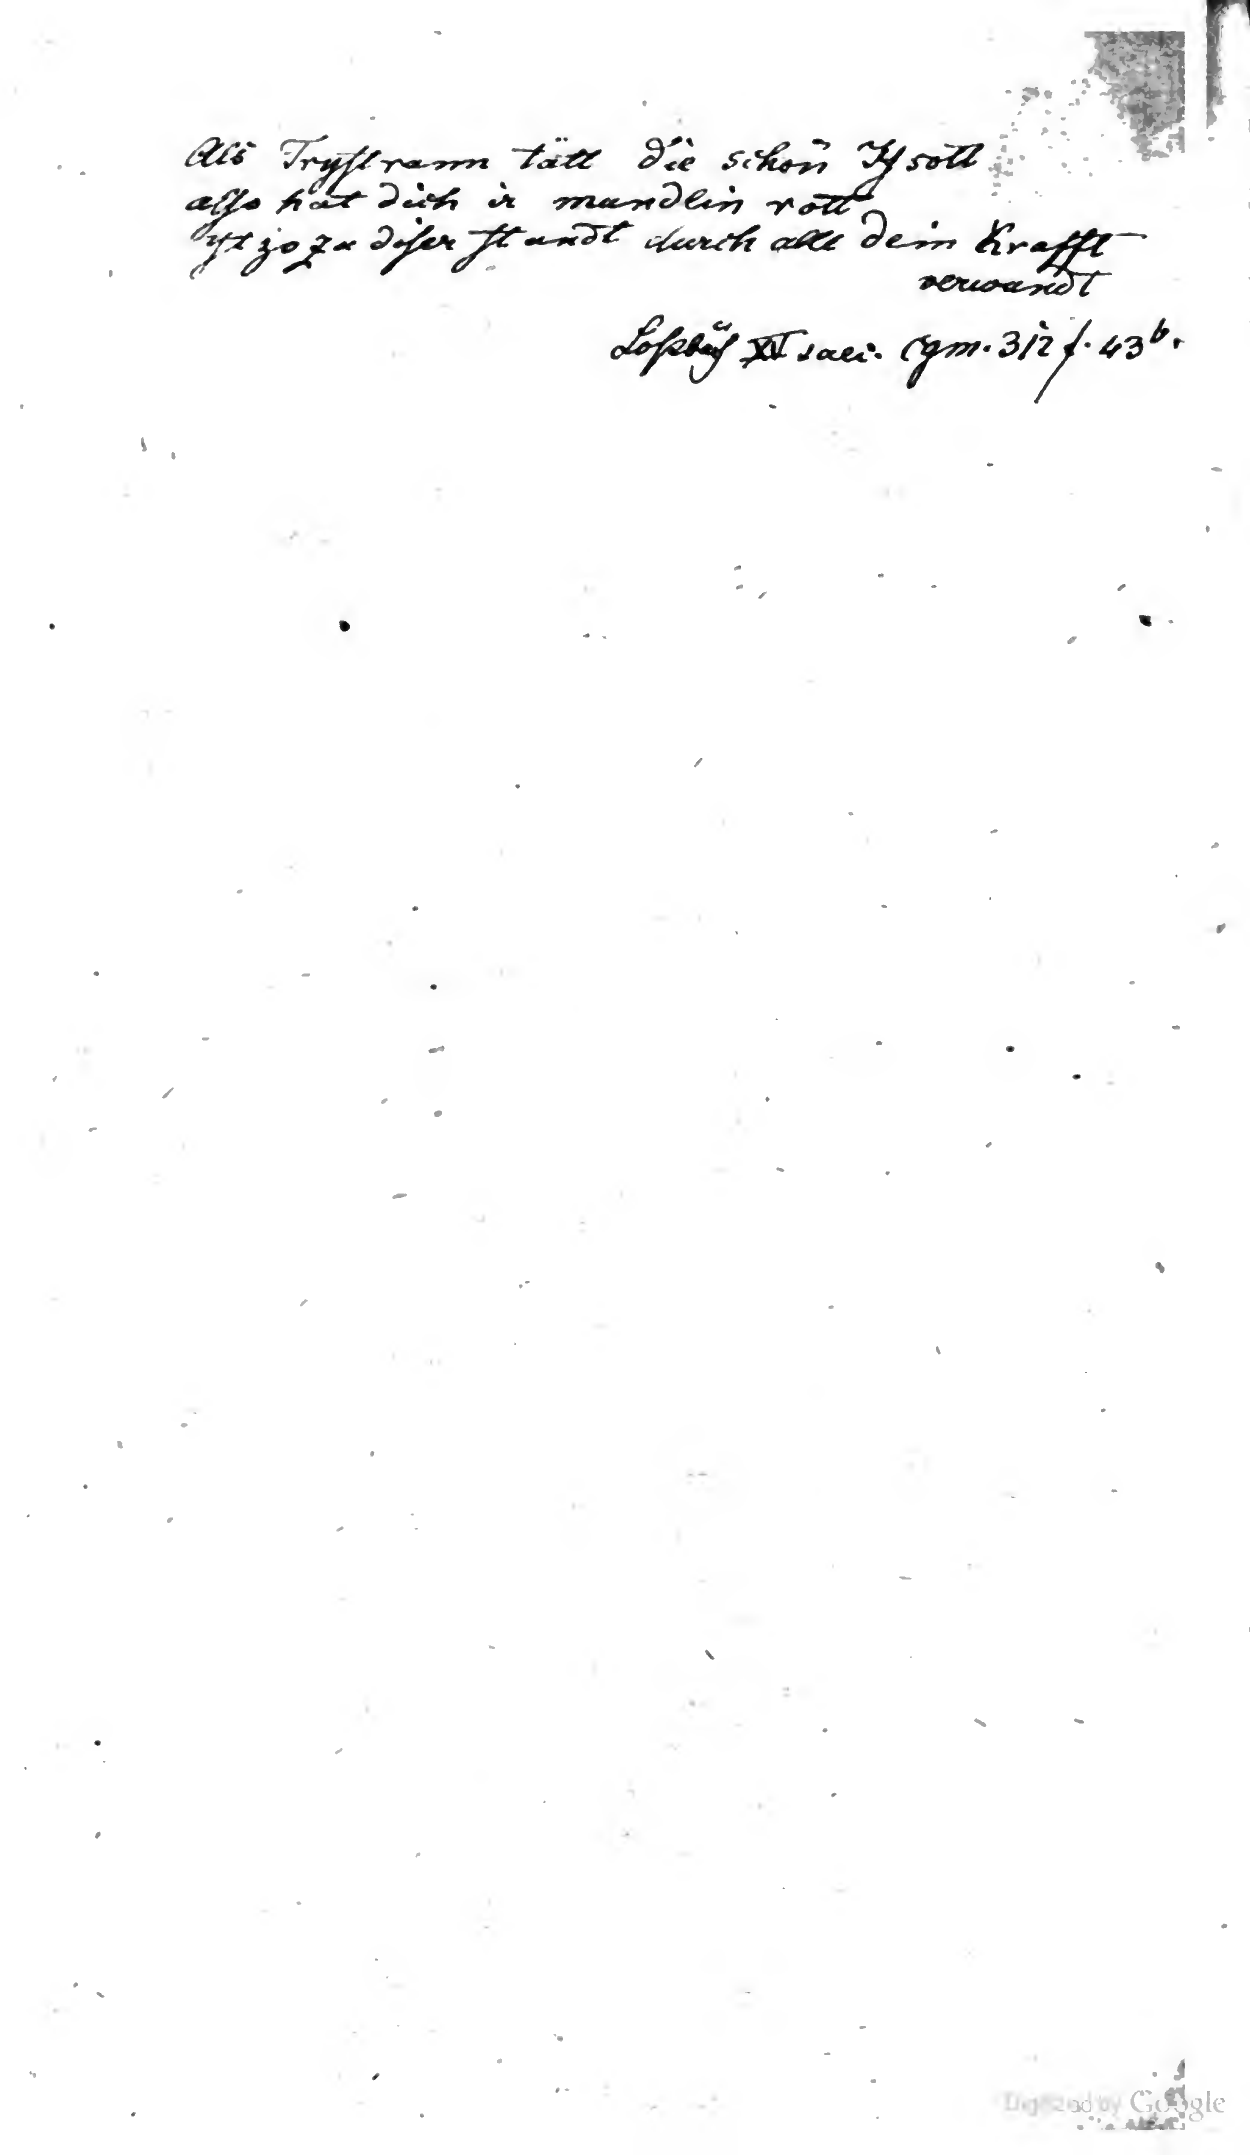 Als Trystrann tätt die schön Ysott
also hat dich ir mundlin rott
yt zo zu diser stundt durch all dein Krafft
verwandt
Loßbuch XV saec. Cgm. 312 f. 43b.
Digitized by Google